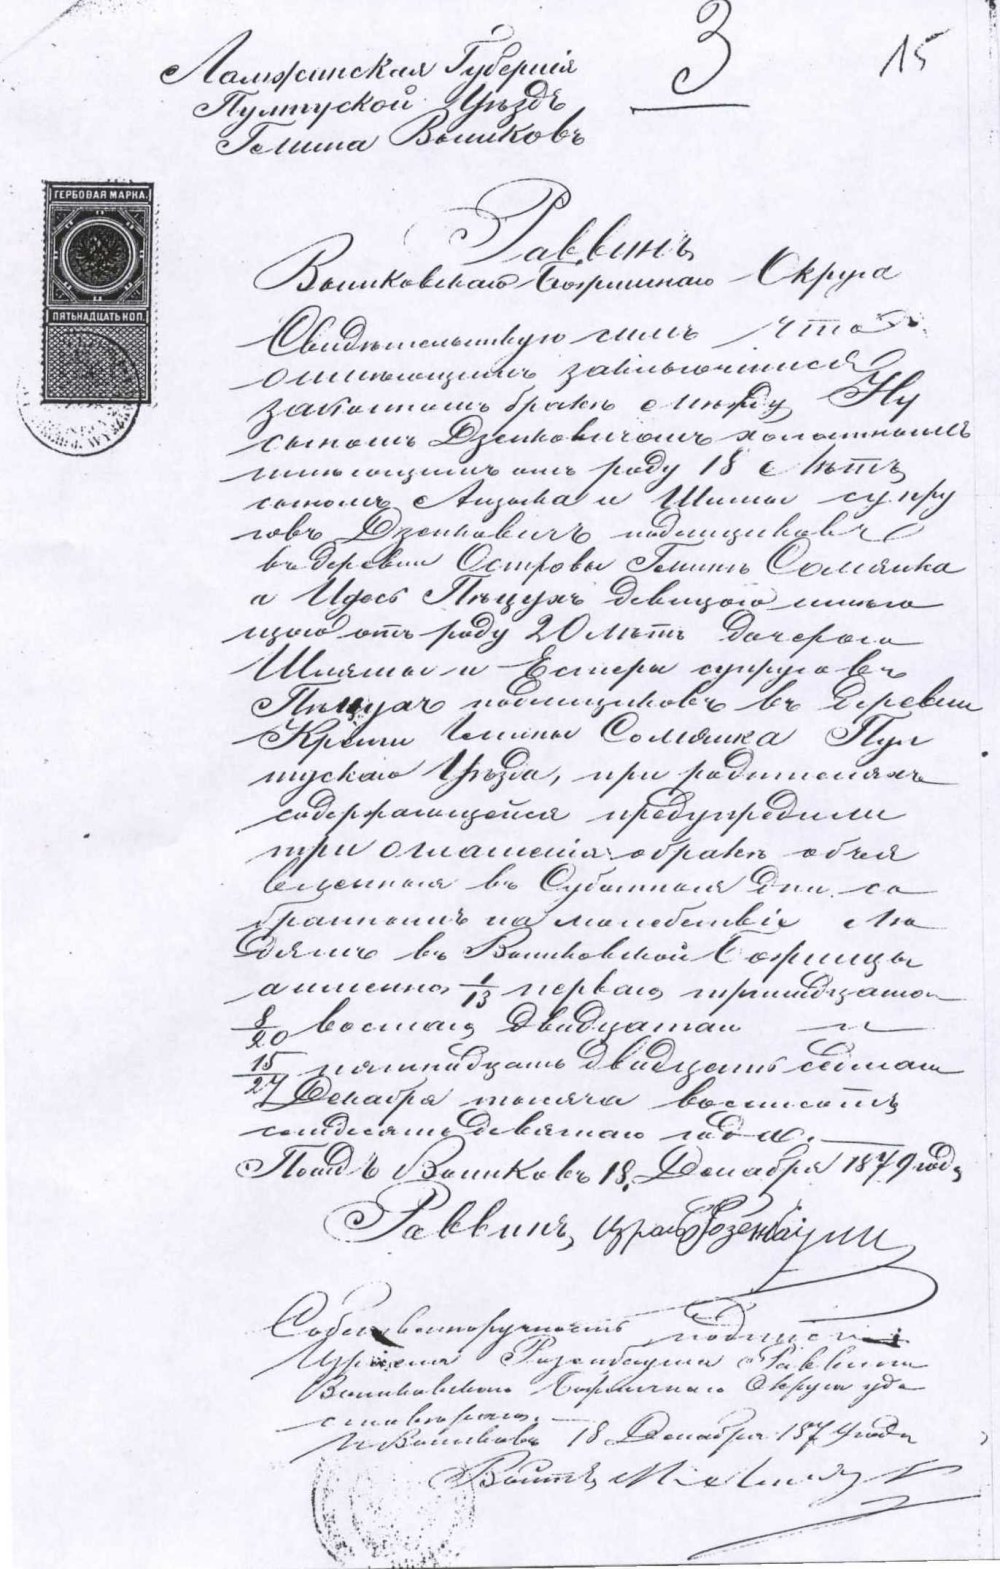 3
15
Ломжинская Губернія
Пултуской Уѣздъ
Гмина Вышковъ
ГЕРБОВАЯ МАРКА.
ПЯТЬНАДЦАТЬ КОП.
Раввинъ
Вышковскаго Божничнаго Округа
Свидѣтельствую симъ что
о имѣющимъ заключитися
законномъ бракѣ между Ну
сыномъ Дзенковичомъ холостномъ
имѣющимъ отъ роду 18 лѣтъ
сыномъ и супру
говъ Дзенковичъ поденщиковъ
въ деревни Островы Гмины Сомянка
а Пѣцухъ девицою имѣю
щою отъ роду 20 лѣтъ дочерою
Шлямы и Естеры супруговъ
Пѣцухъ поденщиковъ въ деревни
Кренги Гмины Сомянка Пул
тускаго Уѣзда, при родителяхъ
содержающейся предупредили
три оглашенія о бракѣ объя
вленныя въ Субботныя Дни со
браннымъ на молебствіе Лю
дямъ въ Вышковской Божницы
а именно 1/13 перваго тринадцатаго
8/20 восмаго двадцатаго и
15/27 пятнадцать двадцать седмаго
Декабря тысяча восемсотъ
семдесятъ девятаго года.
Посадъ Вышковъ 18 Декабря 1879 года
Раввинъ Розенбаумъ
Собственноручность подписи
Израеля Розенбаума Раввина
Вышковскаго Божничнаго Округа удо
стовѣряю.
Вышковъ 18 Декабря 1879 года
Войтъ